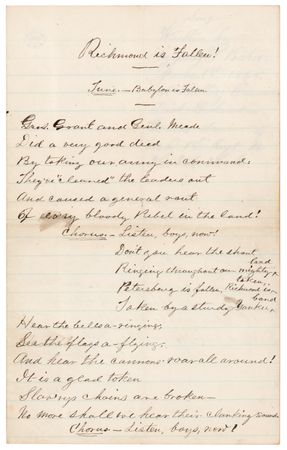 Richmond is Fallen!
Tune. – Babylon is Fallen.
Gens. Grant and Genl. Meade
Did a very good deed
By taking our army in command:
They've "cleaned" the leaders out
And caused a general rout
Of every bloody Rebel in the land!
Chorus – Listen, boys, now!
Don't you hear the shout
Ringing throughout our mighty land
Petersburg is fallen, Richmond is taken,
Taken by a sturdy Yankee band
Hear the bells a-ringing,
See the flags a-flying,
And hear the cannons roar all around!
It is a glad token
Slavery's chains are broken –
No more shall we hear their clanking sound
Chorus – Listen, boys, now!